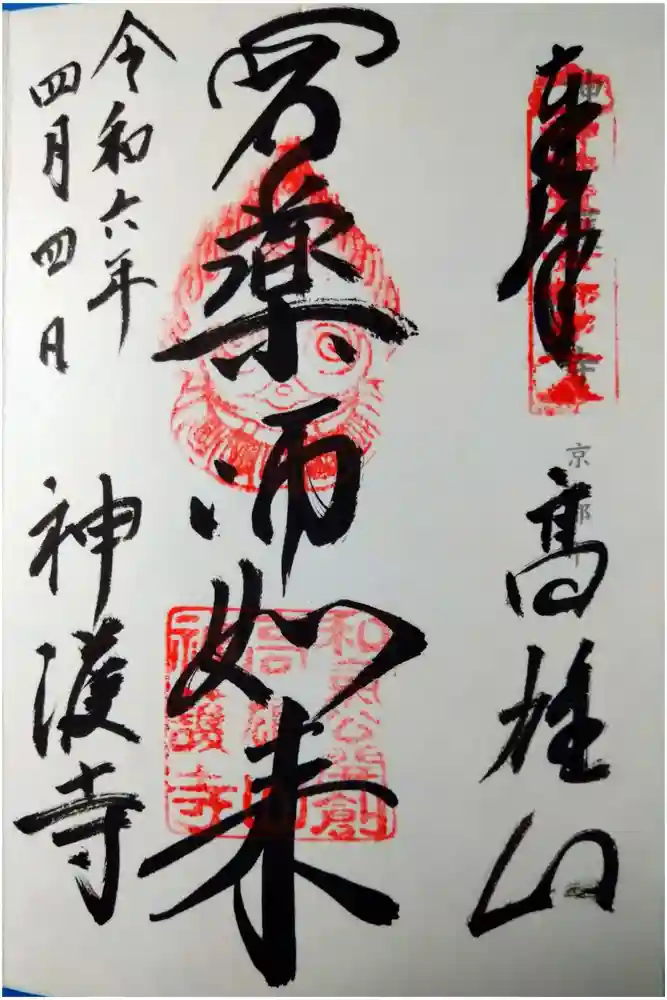 奉拝
高雄山
京都
薬師如来
和氣公 創
高雄山
神護寺
令和六年
四月四日
神護寺